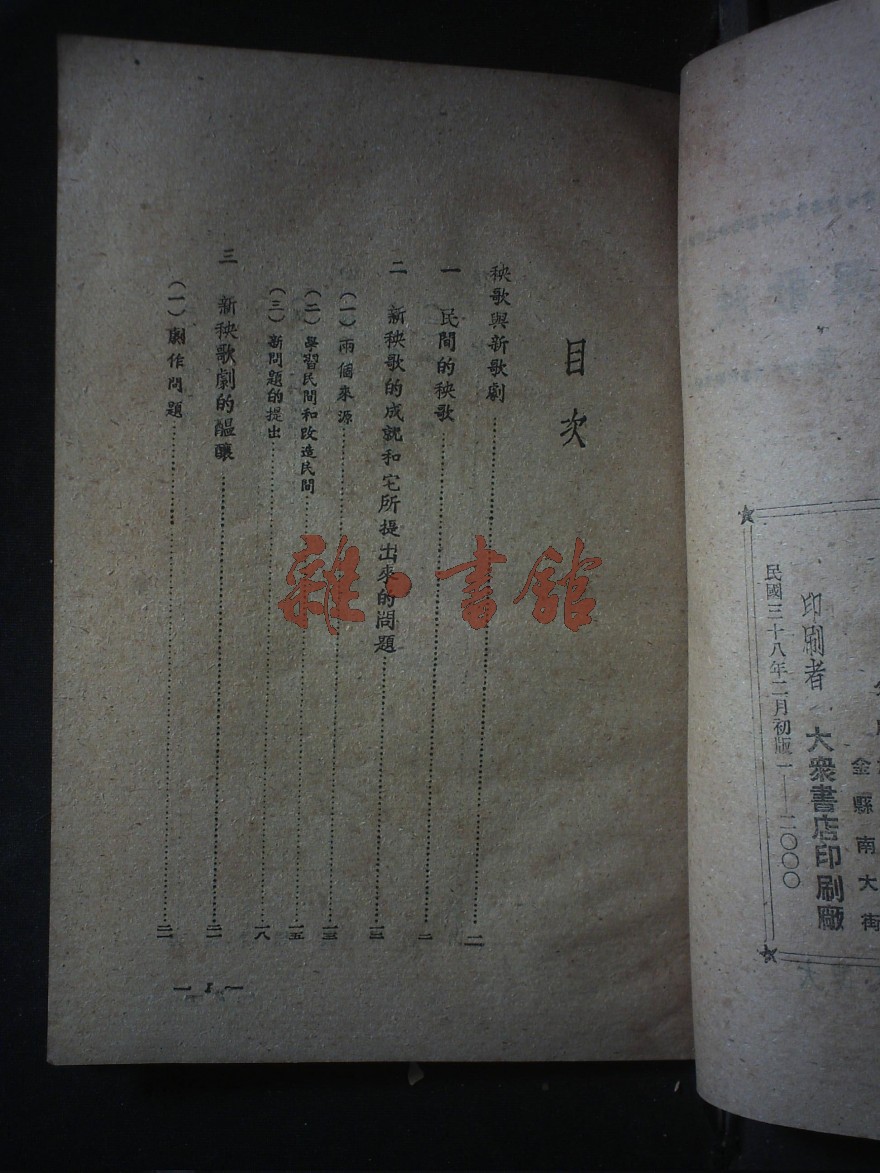 金縣南大街
印刷者 大眾書店印刷廠
民國三十八年二月初版一——二〇〇〇
目次
秧歌與新歌劇……二
一 民間的秧歌……二
二 新秧歌的成就和宅所提出來的問題……一三
(一)兩個來源……一三
(二)學習民間和改造民間……一五
(三)新問題的提出……一八
三 新秧歌劇的醞釀……二一
(一)劇作問題……二一
雜·書館